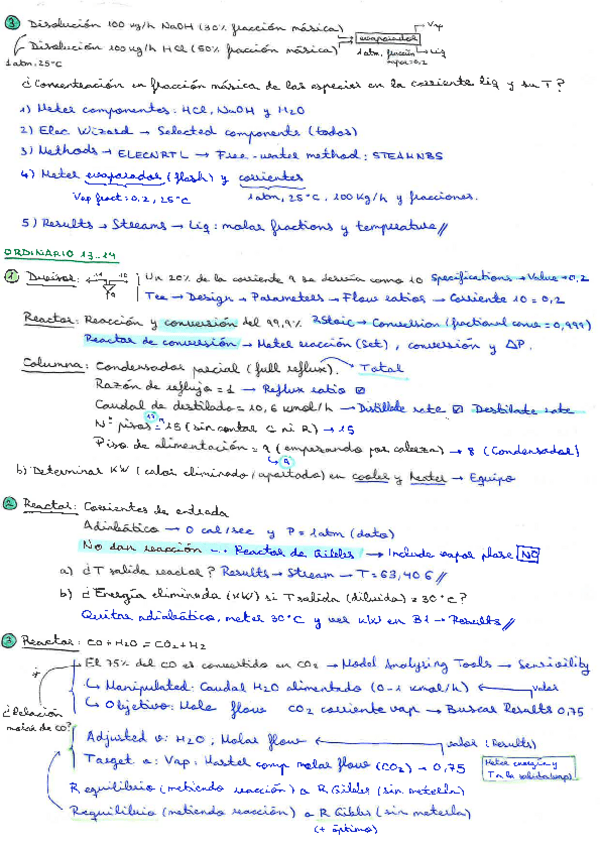 ③ Disolución 100 kg/h NaOH (30% fracción másica) → Vap
Disolución 100 kg/h HCl (50% fracción másica) → evaporador → Liq
1 atm, 25°C
1 atm, fracción vapor=0,2
¿Concentración en fracción másica de las especies en la corriente liq y su T?
1) Meter componentes: HCl, NaOH y H2O
2) Elec Wizard → Selected components (todos)
3) Methods → ELECNRTL → Free-water method: STEAMNBS
4) Meter evaporador (flash) y corrientes
Vap fract: 0,2, 25°C
1 atm, 25°C, 100 kg/h y fracciones.
5) Results → Streams → Liq: molar fractions y temperature //
ORDINARIO 13-14
① Divisor: 10 9 Un 20% de la corriente 9 se desvía como 10 Specifications → Value → 0,2
Tee → Design → Parameters → Flow ratios → Corriente 10 = 0,2
Reactor: Reacción y conversión del 99,9% RStoic → Conversion (fractional conv = 0,999)
Reactor de conversión → Meter reacción (Set), conversión y ΔP.
Columna: Condensador parcial (full reflux). → Total
Razón de reflujo = 1 → Reflux ratio ☑
Caudal de destilado = 10,6 kmol/h → Distillate rate ☑ Destilate rate
17
Nº pisos = 15 (sin contar C ni R) → 15
Piso de alimentación = 9 (empezando por cabeza) → 8 (Condensador)
9
b) Determinar KW (calor eliminado / aportado) en cooler y heater → Equipo
② Reactor: Corrientes de entrada
Adiabático → 0 cal/sec y P = 1 atm (dato)
No dan reacción → Reactor de Gibbs → Include vapor phase NO
a) ¿T salida reactor? Results → Stream → T = 63,406 //
b) ¿Energía eliminada (KW) si T salida (diluida) = 30°C?
Quitar adiabático, meter 30°C y ver KW en B1 → Results //
③ Reactor: CO + H2O = CO2 + H2
El 75% del CO es convertido en CO2 → Model Analysing Tools → Sensivility
↳ Manipulated: Caudal H2O alimentado (0-1 kmol/h) ← valor
↳ Objetivo: Mole flow CO2 corriente vap → Buscar Results 0,75
¿Relación molar de CO?
Adjusted v: H2O; Molar flow ← valor (Results)
Target v: Vap; Master comp molar flow (CO2) → 0,75
Meter energía y T a la salida (vap)
R equilibrio (metiendo reacción) o R Gibbs (sin meterla)
Requilibrio (metiendo reacción) o R Gibbs (sin meterla)
(+ óptimo)